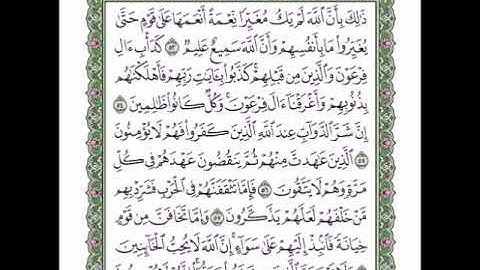 ذَٰلِكَ بِأَنَّ ٱللَّهَ لَمْ يَكُ مُغَيِّرًا نِّعْمَةً أَنْعَمَهَا عَلَىٰ قَوْمٍ حَتَّىٰ
يُغَيِّرُوا۟ مَا بِأَنفُسِهِمْ وَأَنَّ ٱللَّهَ سَمِيعٌ عَلِيمٌ ٥٣ كَدَأْبِ ءَالِ
فِرْعَوْنَ وَٱلَّذِينَ مِن قَبْلِهِمْ كَذَّبُوا۟ بِـَٔايَـٰتِ رَبِّهِمْ فَأَهْلَكْنَـٰهُم
بِذُنُوبِهِمْ وَأَغْرَقْنَآ ءَالَ فِرْعَوْنَ وَكُلٌّ كَانُوا۟ ظَـٰلِمِينَ ٥٤
إِنَّ شَرَّ ٱلدَّوَآبِّ عِندَ ٱللَّهِ ٱلَّذِينَ كَفَرُوا۟ فَهُمْ لَا يُؤْمِنُونَ
٥٥ ٱلَّذِينَ عَـٰهَدتَّ مِنْهُمْ ثُمَّ يَنقُضُونَ عَهْدَهُمْ فِى كُلِّ
مَرَّةٍ وَهُمْ لَا يَتَّقُونَ ٥٦ فَإِمَّا تَثْقَفَنَّهُمْ فِى ٱلْحَرْبِ فَشَرِّدْ بِهِم
مَّنْ خَلْفَهُمْ لَعَلَّهُمْ يَذَّكَّرُونَ ٥٧ وَإِمَّا تَخَافَنَّ مِن قَوْمٍ
خِيَانَةً فَٱنۢبِذْ إِلَيْهِمْ عَلَىٰ سَوَآءٍ إِنَّ ٱللَّهَ لَا يُحِبُّ ٱلْخَآئِنِينَ